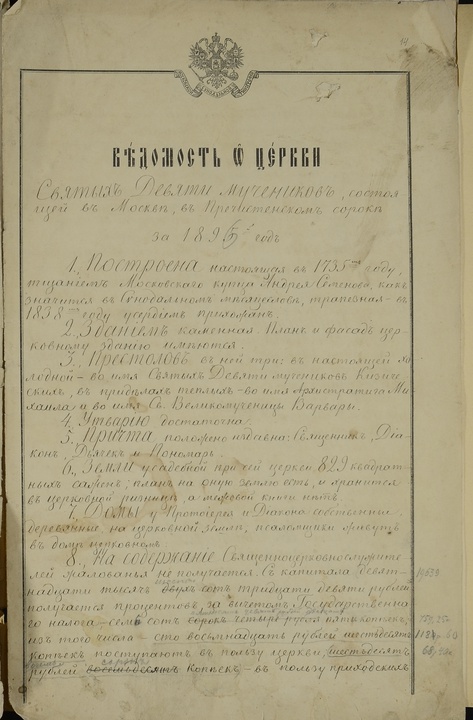 14
ВѢДОМОСТЬ Ѿ ЦЕРКВИ
Святыхъ Девяти мучениковъ, состоя
щей въ Москвѣ, въ Пречистенскомъ сорокѣ
за 1895й годъ
1. Построена настоящая въ 1735мъ году,
тщаніемъ Московскаго купца Андрея Семенова, какъ
значится въ Сѵнодальномъ, трапезная – въ
1838мъ году усердіемъ прихожанъ.
2. Зданіемъ каменная. Планъ и фасадъ цер
ковному зданію имѣются.
3. Престоловъ въ ней три: въ настоящей хо
лодной – во имя Святыхъ Девяти мучениковъ Кизиче
скихъ, въ придѣлахъ теплыхъ – во имя Архистратига Ми
хаила и во имя Св. Великомученицы Варвары.
4. Утварью достаточна.
5. Причта положено издавна: Священникъ, Діа
конъ, Дьячекъ и Пономарь.
6. Земли усадебной при сей церкви 829 квадрат
ныхъ саженъ; планъ на оную землю есть, и хранится
въ церковной ризницѣ, а межевой книги нѣтъ.
7. Домы у Протоіерея и Діакона собственные
деревянные на церковной землѣ, псаломщики живутъ
въ домѣ церковномъ.
8. На содержаніе Священноцерковнослужите
лей жалованья не получается. Съ капитала девят
надцати тысячъ двухъ сотъ тридцати девяти рублей
получается процентовъ, за вычетомъ Государственна
го налога – семь сотъ сорокъ четыре рубля пять копѣекъ;
изъ того числа – сто восемнадцать рублей шестьдесятъ
копѣекъ поступаютъ въ пользу церкви, шестьдесятъ
рублей восемьдесятъ копѣекъ – въ пользу приходскихъ